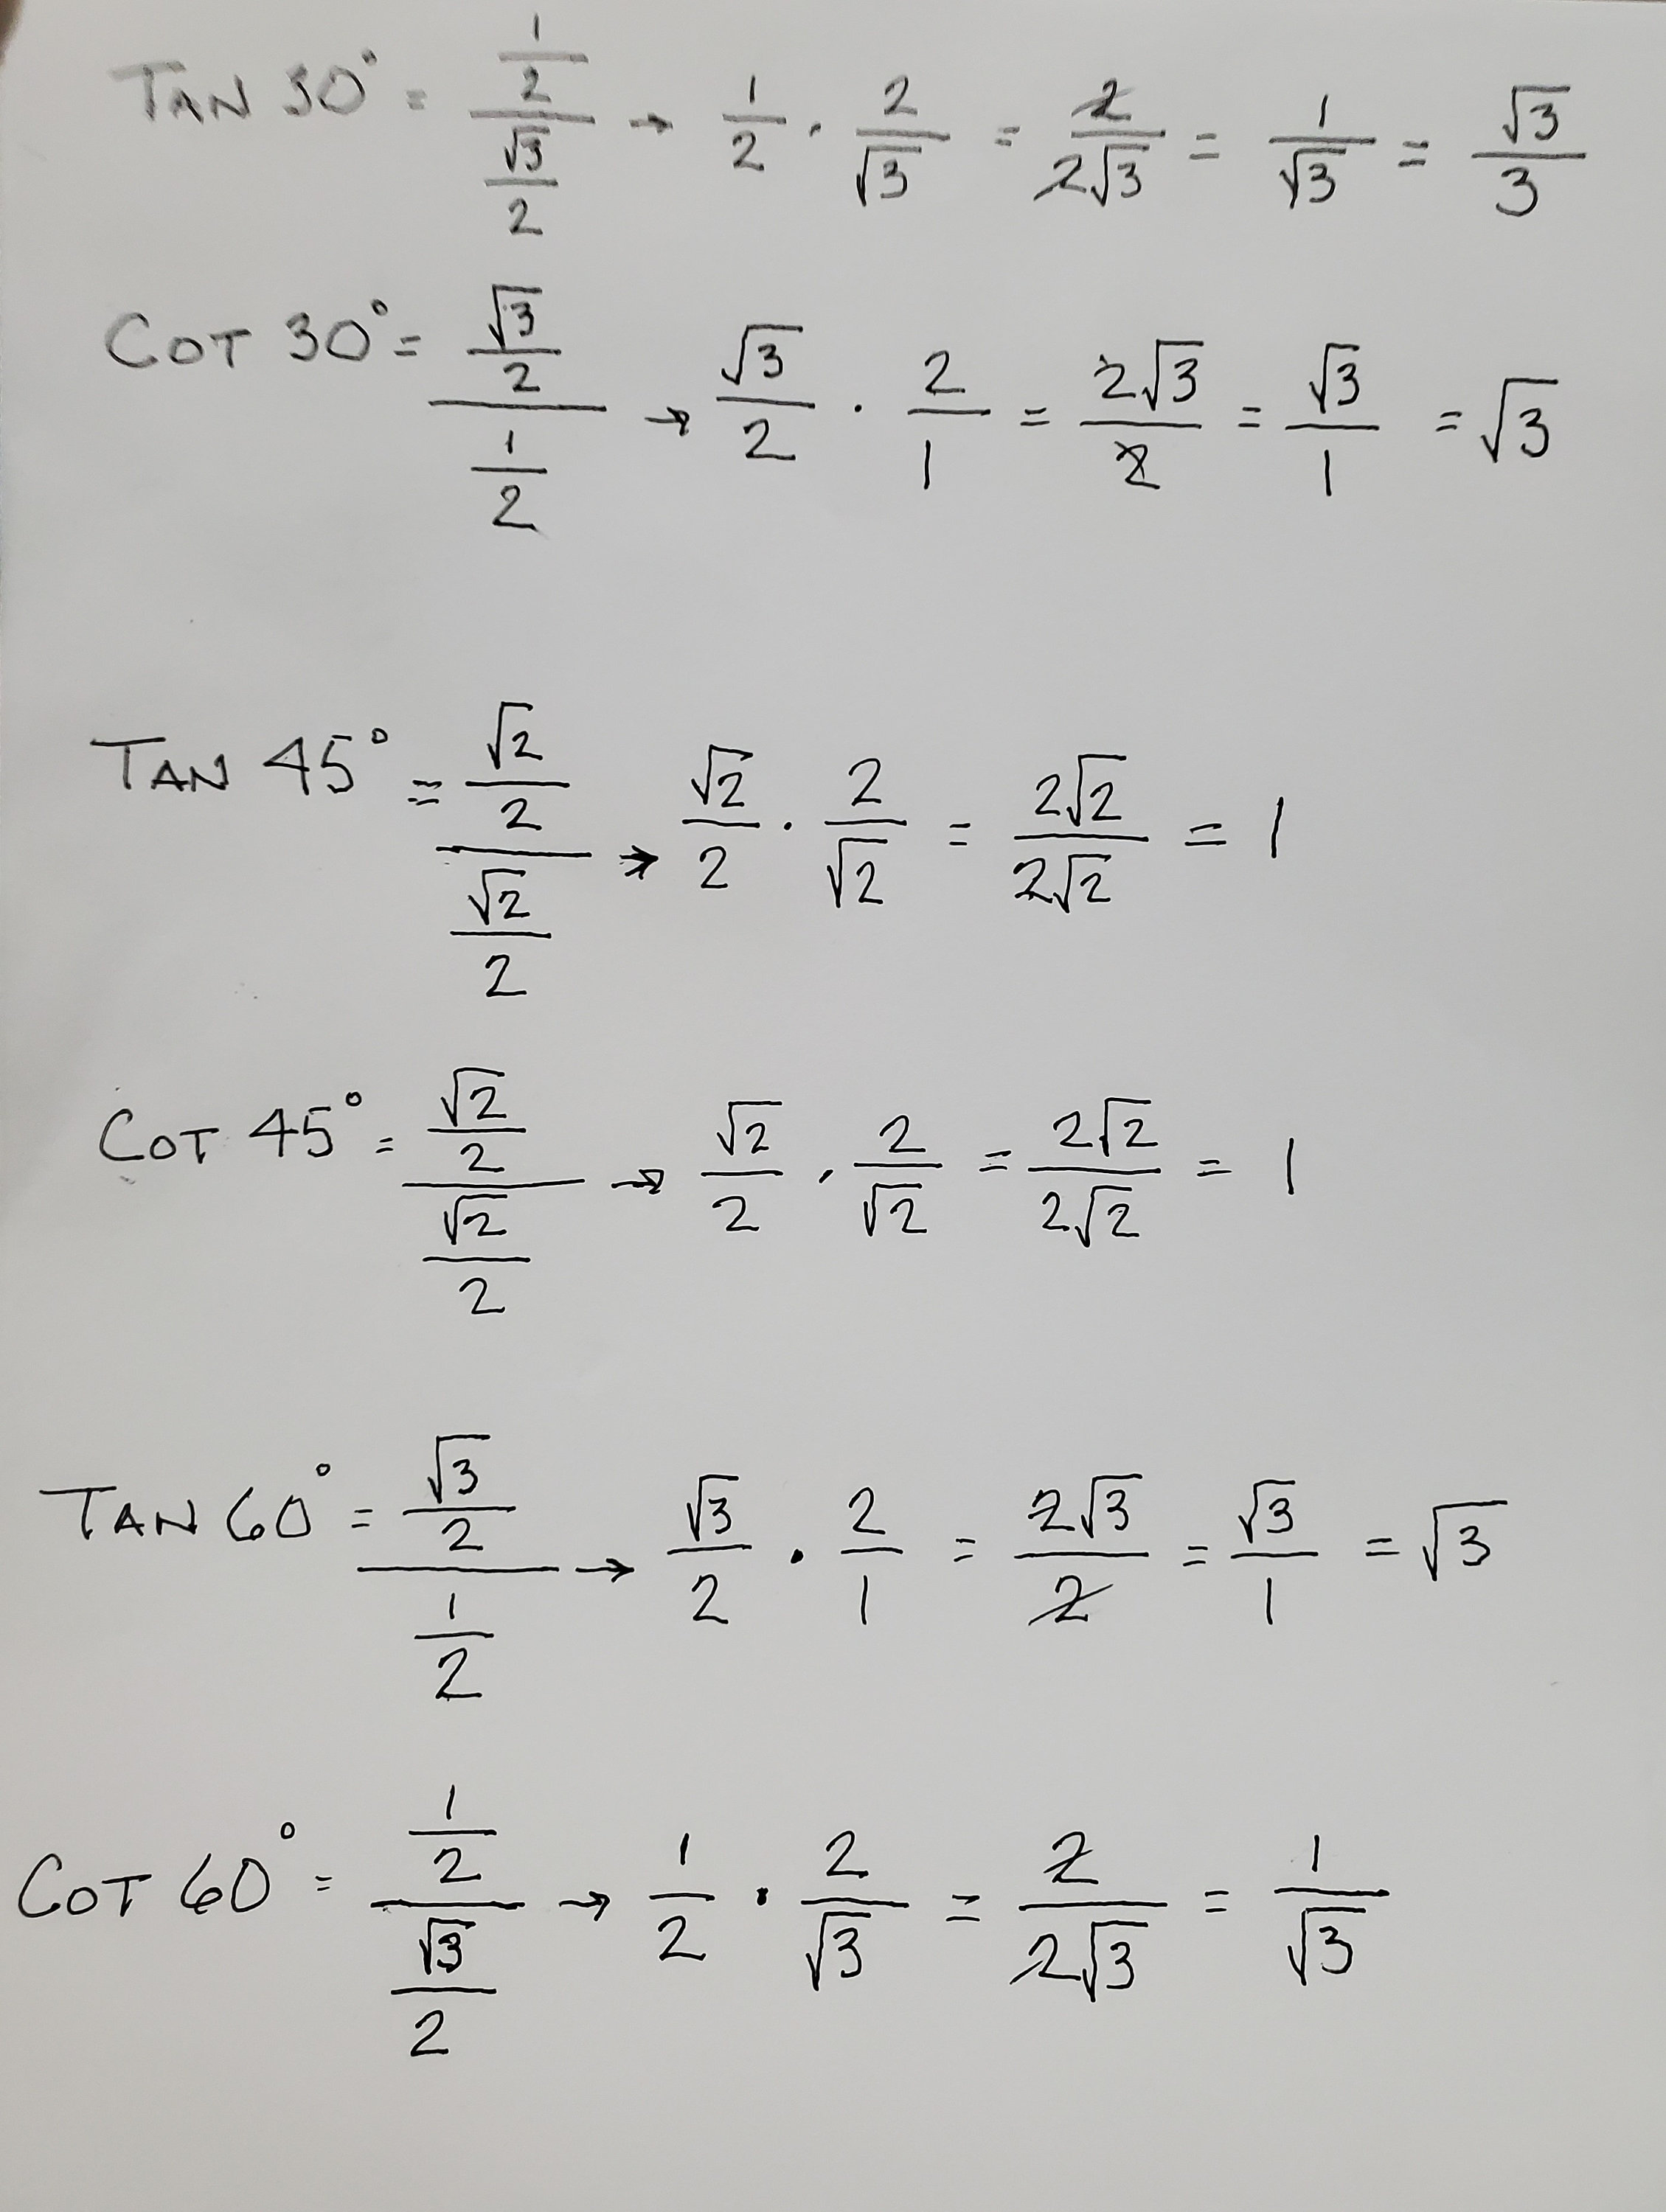 TAN 30° = (1/2)/(√3/2) → 1/2 · 2/√3 = 2/2√3 = 1/√3 = √3/3
COT 30° = (√3/2)/(1/2) → √3/2 · 2/1 = 2√3/2 = √3/1 = √3
TAN 45° = (√2/2)/(√2/2) → √2/2 · 2/√2 = 2√2/2√2 = 1
COT 45° = (√2/2)/(√2/2) → √2/2 · 2/√2 = 2√2/2√2 = 1
TAN 60° = (√3/2)/(1/2) → √3/2 · 2/1 = 2√3/2 = √3/1 = √3
COT 60° = (1/2)/(√3/2) → 1/2 · 2/√3 = 2/2√3 = 1/√3